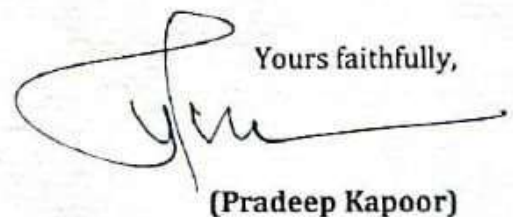 Yours faithfully,
(Pradeep Kapoor)